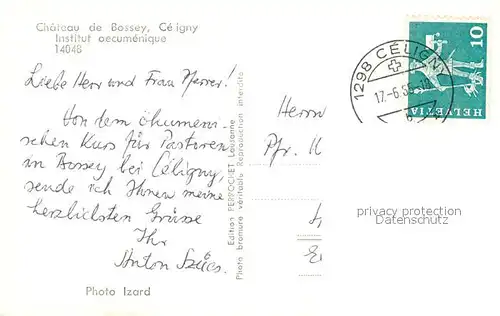 Château de Bossey, Céligny
Institut oecuménique
14048
Liebe Herr und Frau Pfarrer!
Von dem ökumeni-
schen Kurs für Pastoren
in Bossey bei Céligny,
sende ich Ihnen meine
herzlichsten Grüsse
Ihr
Anton Szücs.
Photo Izard
Edition PERPOCHET Lausanne
Photo bromure véritable Reproduction interdite
Herrn
Pfr.
1298 CÉLIGNY
HELVETIA
10
privacy protection
Datenschutz